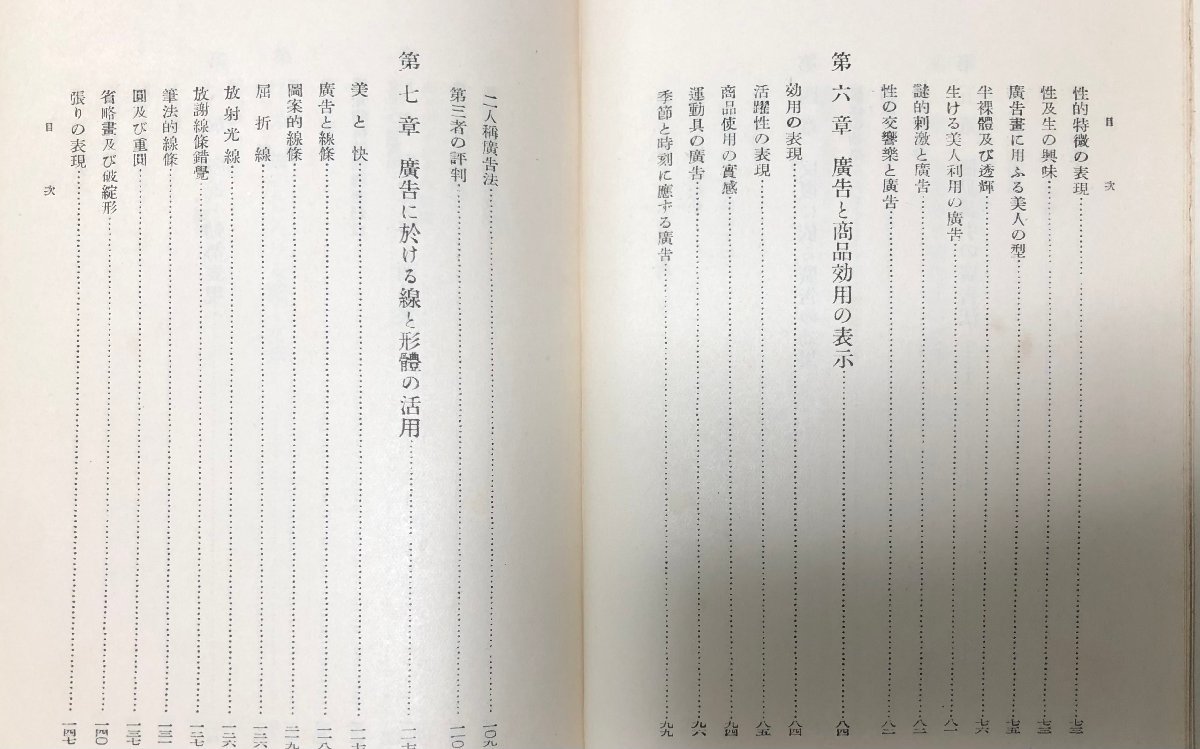 目次
性的特徴の表現……七三
性及生の興味……七三
廣告畫に用ふる美人の型……七五
半裸體及び透輝……七六
生ける美人利用の廣告……八一
謎的刺激と廣告……八二
性の交響樂と廣告……八二
第六章 廣告と商品効用の表示……八四
効用の表現……八四
活躍性の表現……八五
商品使用の實感……九四
運動具の廣告……九六
季節と時刻に應ずる廣告……九九
二人稱廣告法……一〇九
第三者の評判……一一〇
第七章 廣告に於ける線と形體の活用
美と快
廣告と線條
圖案的線條
屈折線……一二六
放射光線……一二六
放謝線條錯覺……一二七
筆法的線條……一三一
圓及び重圓……一三七
省略畫及び破綻形……一四〇
張りの表現……一四七
目次